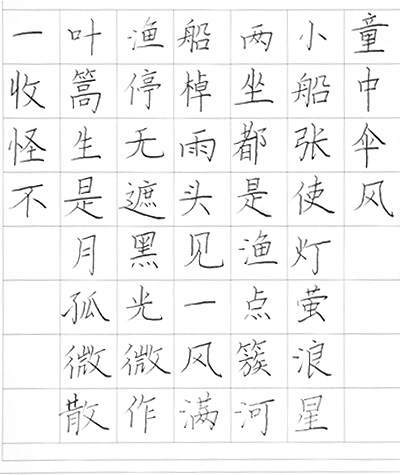 一叶渔船两小童
收篙停棹坐船中
怪生无雨都张伞
不是遮头是使风
月黑见渔灯
孤光一点萤
微微风簇浪
散作满河星